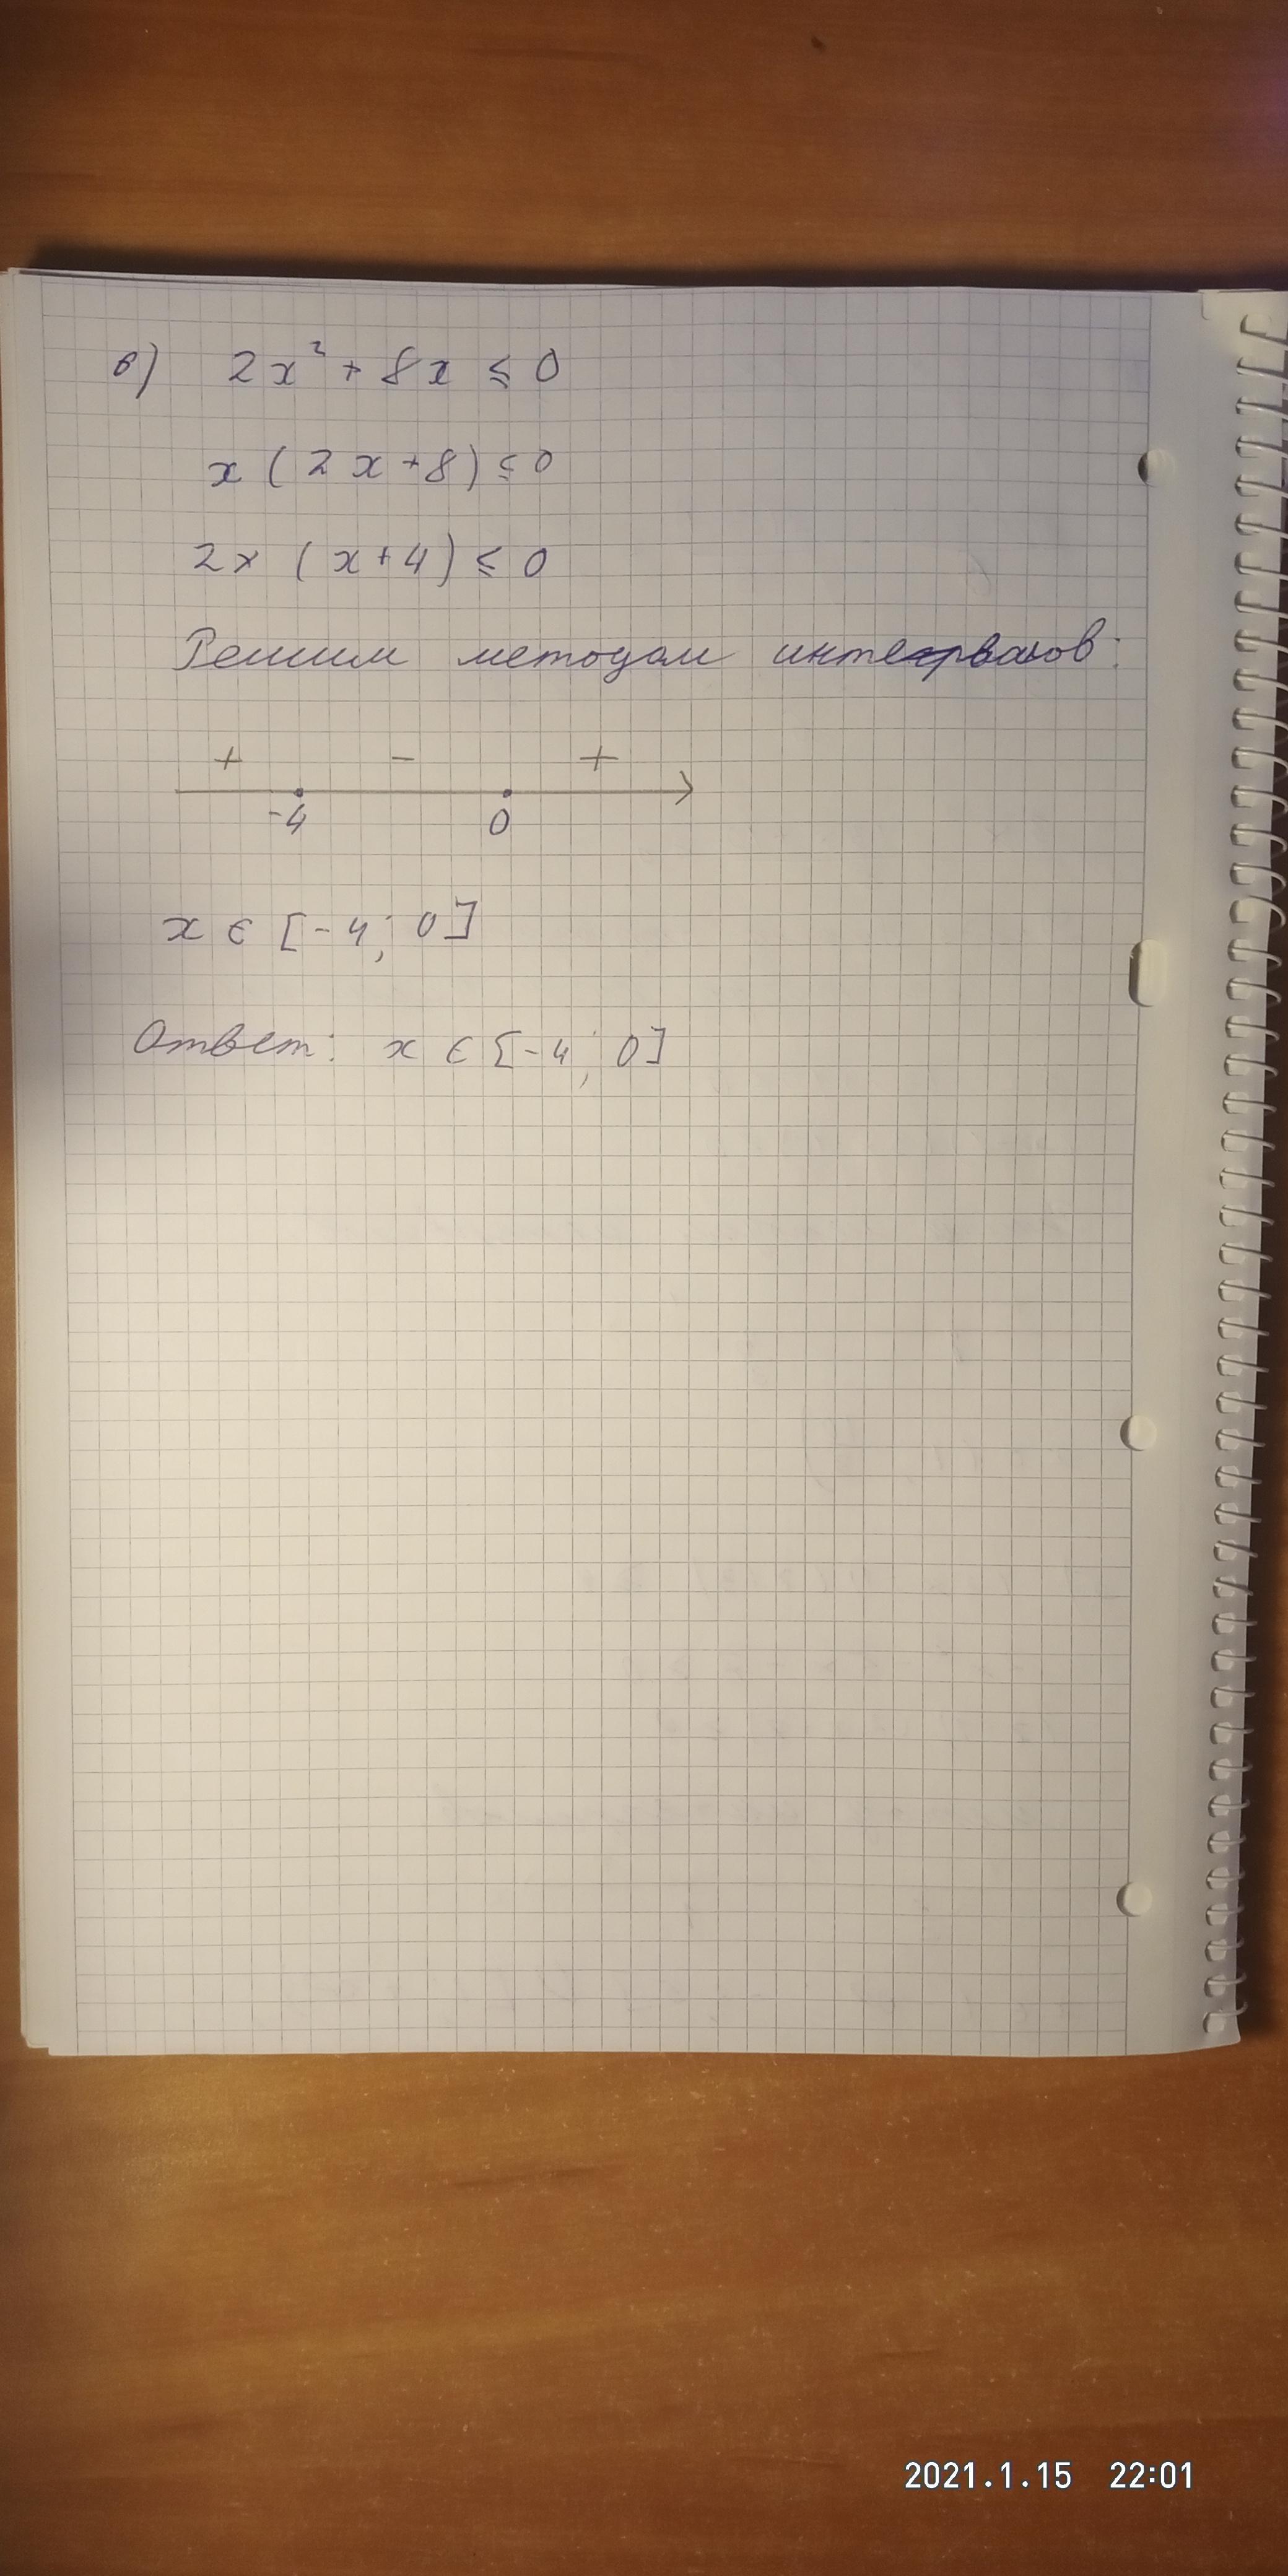 в) 2x² + 8x ≤ 0
x (2x+8) ≤ 0
2x (x+4) ≤ 0
Решим методом интервалов:
+ - +
-4 0
x ∈ [-4; 0]
Ответ: x ∈ [-4; 0]
2021.1.15 22:01